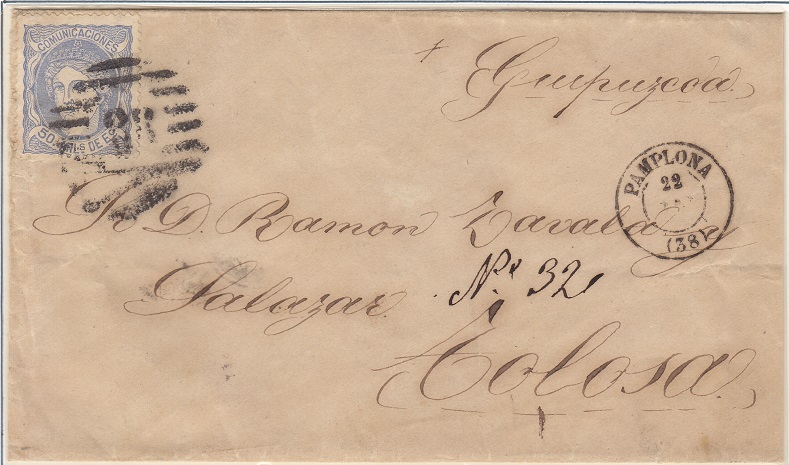 COMUNICACIONES
50 MILS DE ES
Guipuzcoa
PAMPLONA
22
(38)
Sr. D. Ramon Zavala y
Salazar. Nº 32
Tolosa